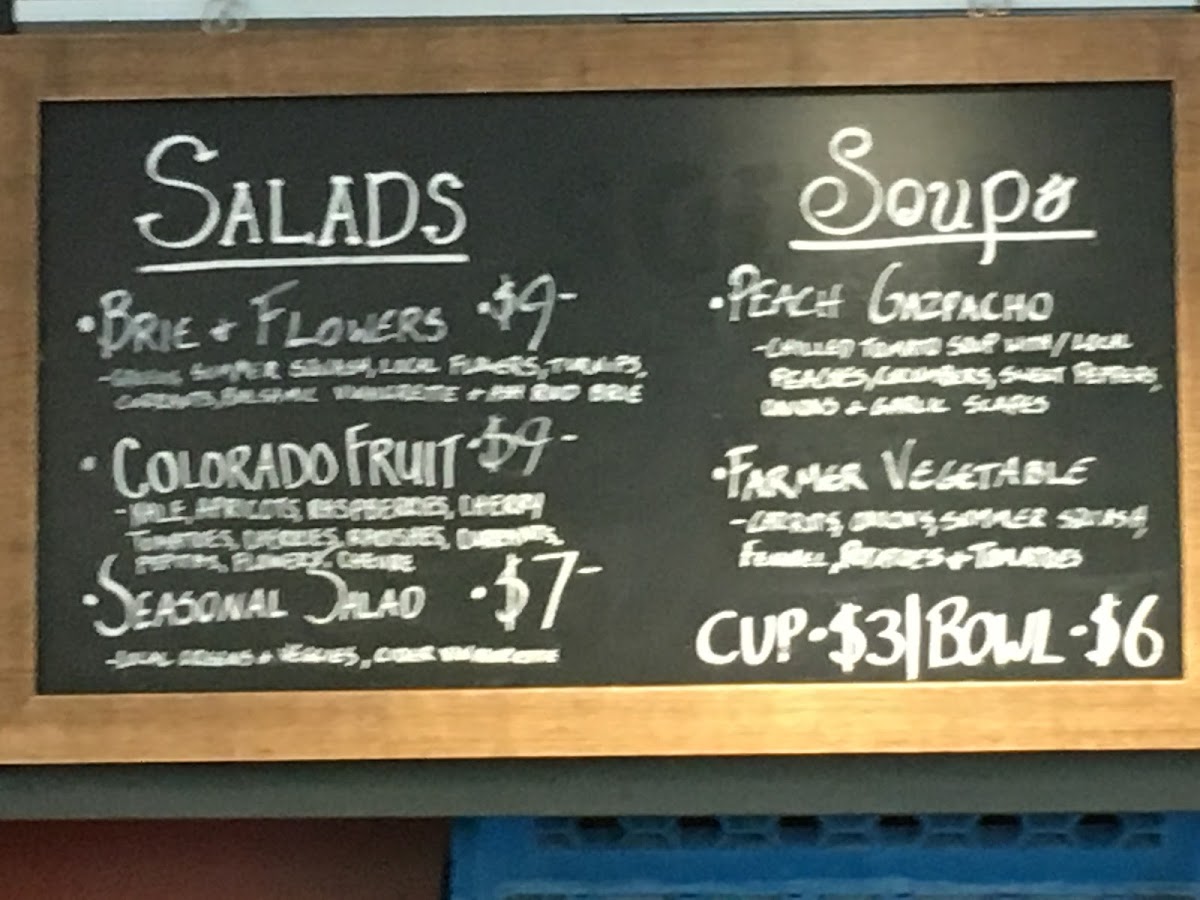 SALADS
• BRIE + FLOWERS • $9-
SUMMER SQUASH, LOCAL FLOWERS, TURNIPS,
BALSAMIC VINAIGRETTE + BRIE
• COLORADO FRUIT • $9-
- KALE, APRICOTS, RASPBERRIES, CHERRY
TOMATOES, CHERRIES, RADISHES, CURRANTS,
PEPITAS, FLOWERS, CHEVRE
• SEASONAL SALAD • $7-
- LOCAL GREENS + VEGGIES, CIDER VINAIGRETTE
Soups
• PEACH GAZPACHO
- CHILLED TOMATO SOUP WITH/ LOCAL
PEACHES, CUCUMBERS, SWEET PEPPERS,
ONIONS + GARLIC SCAPES
• FARMER VEGETABLE
- CARROTS, ONIONS, SUMMER SQUASH,
FENNEL, POTATOES + TOMATOES
CUP • $3 | BOWL - $6